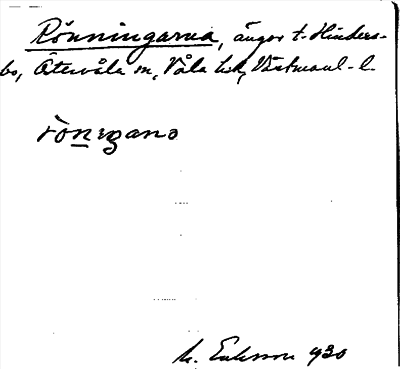 Rönningarna, ängar t. Hinders-
bo, Östervåla sn, Våla hd, Västmanl. l.
rönıgano
M. Eriksson 1930